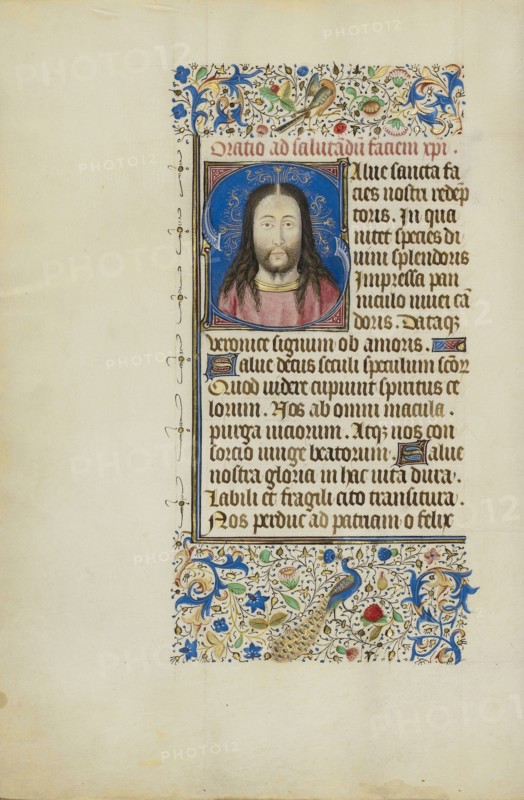 Oratio ad salutādū faciem xpi .
Salue sancta fa
cies nostri redēp
toris . In qua
nitet species di
uini splendoris
Impressa pan
niculo niuei cā
doris . Dataqꝫ
veronice signum ob amoris .
Salue decus seculi speculum sc̄oꝝ
Quod uidere cupiunt spiritus ce
lorum . Nos ab omni macula .
purga uiciorum . Atqꝫ nos con
sorcio iunge beatorum . Salue
nostra gloria in hac uita dura .
Labili et fragili cito transitura .
Nos perduc ad patriam o felix
PHOTO12